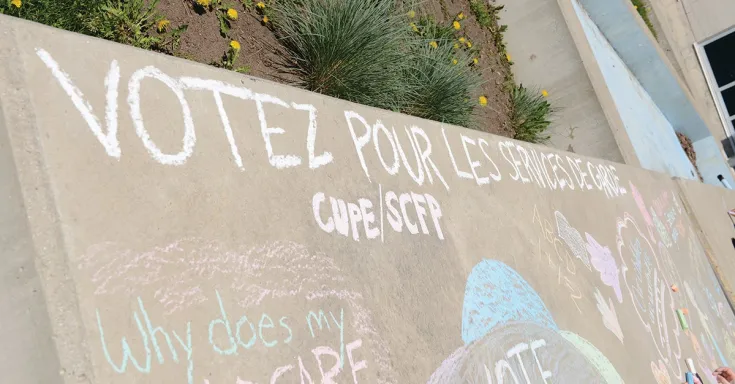 VOTEZ POUR LES SERVICES DE GARDE
CUPE/SCFP
Why does my
CARE
VOTE